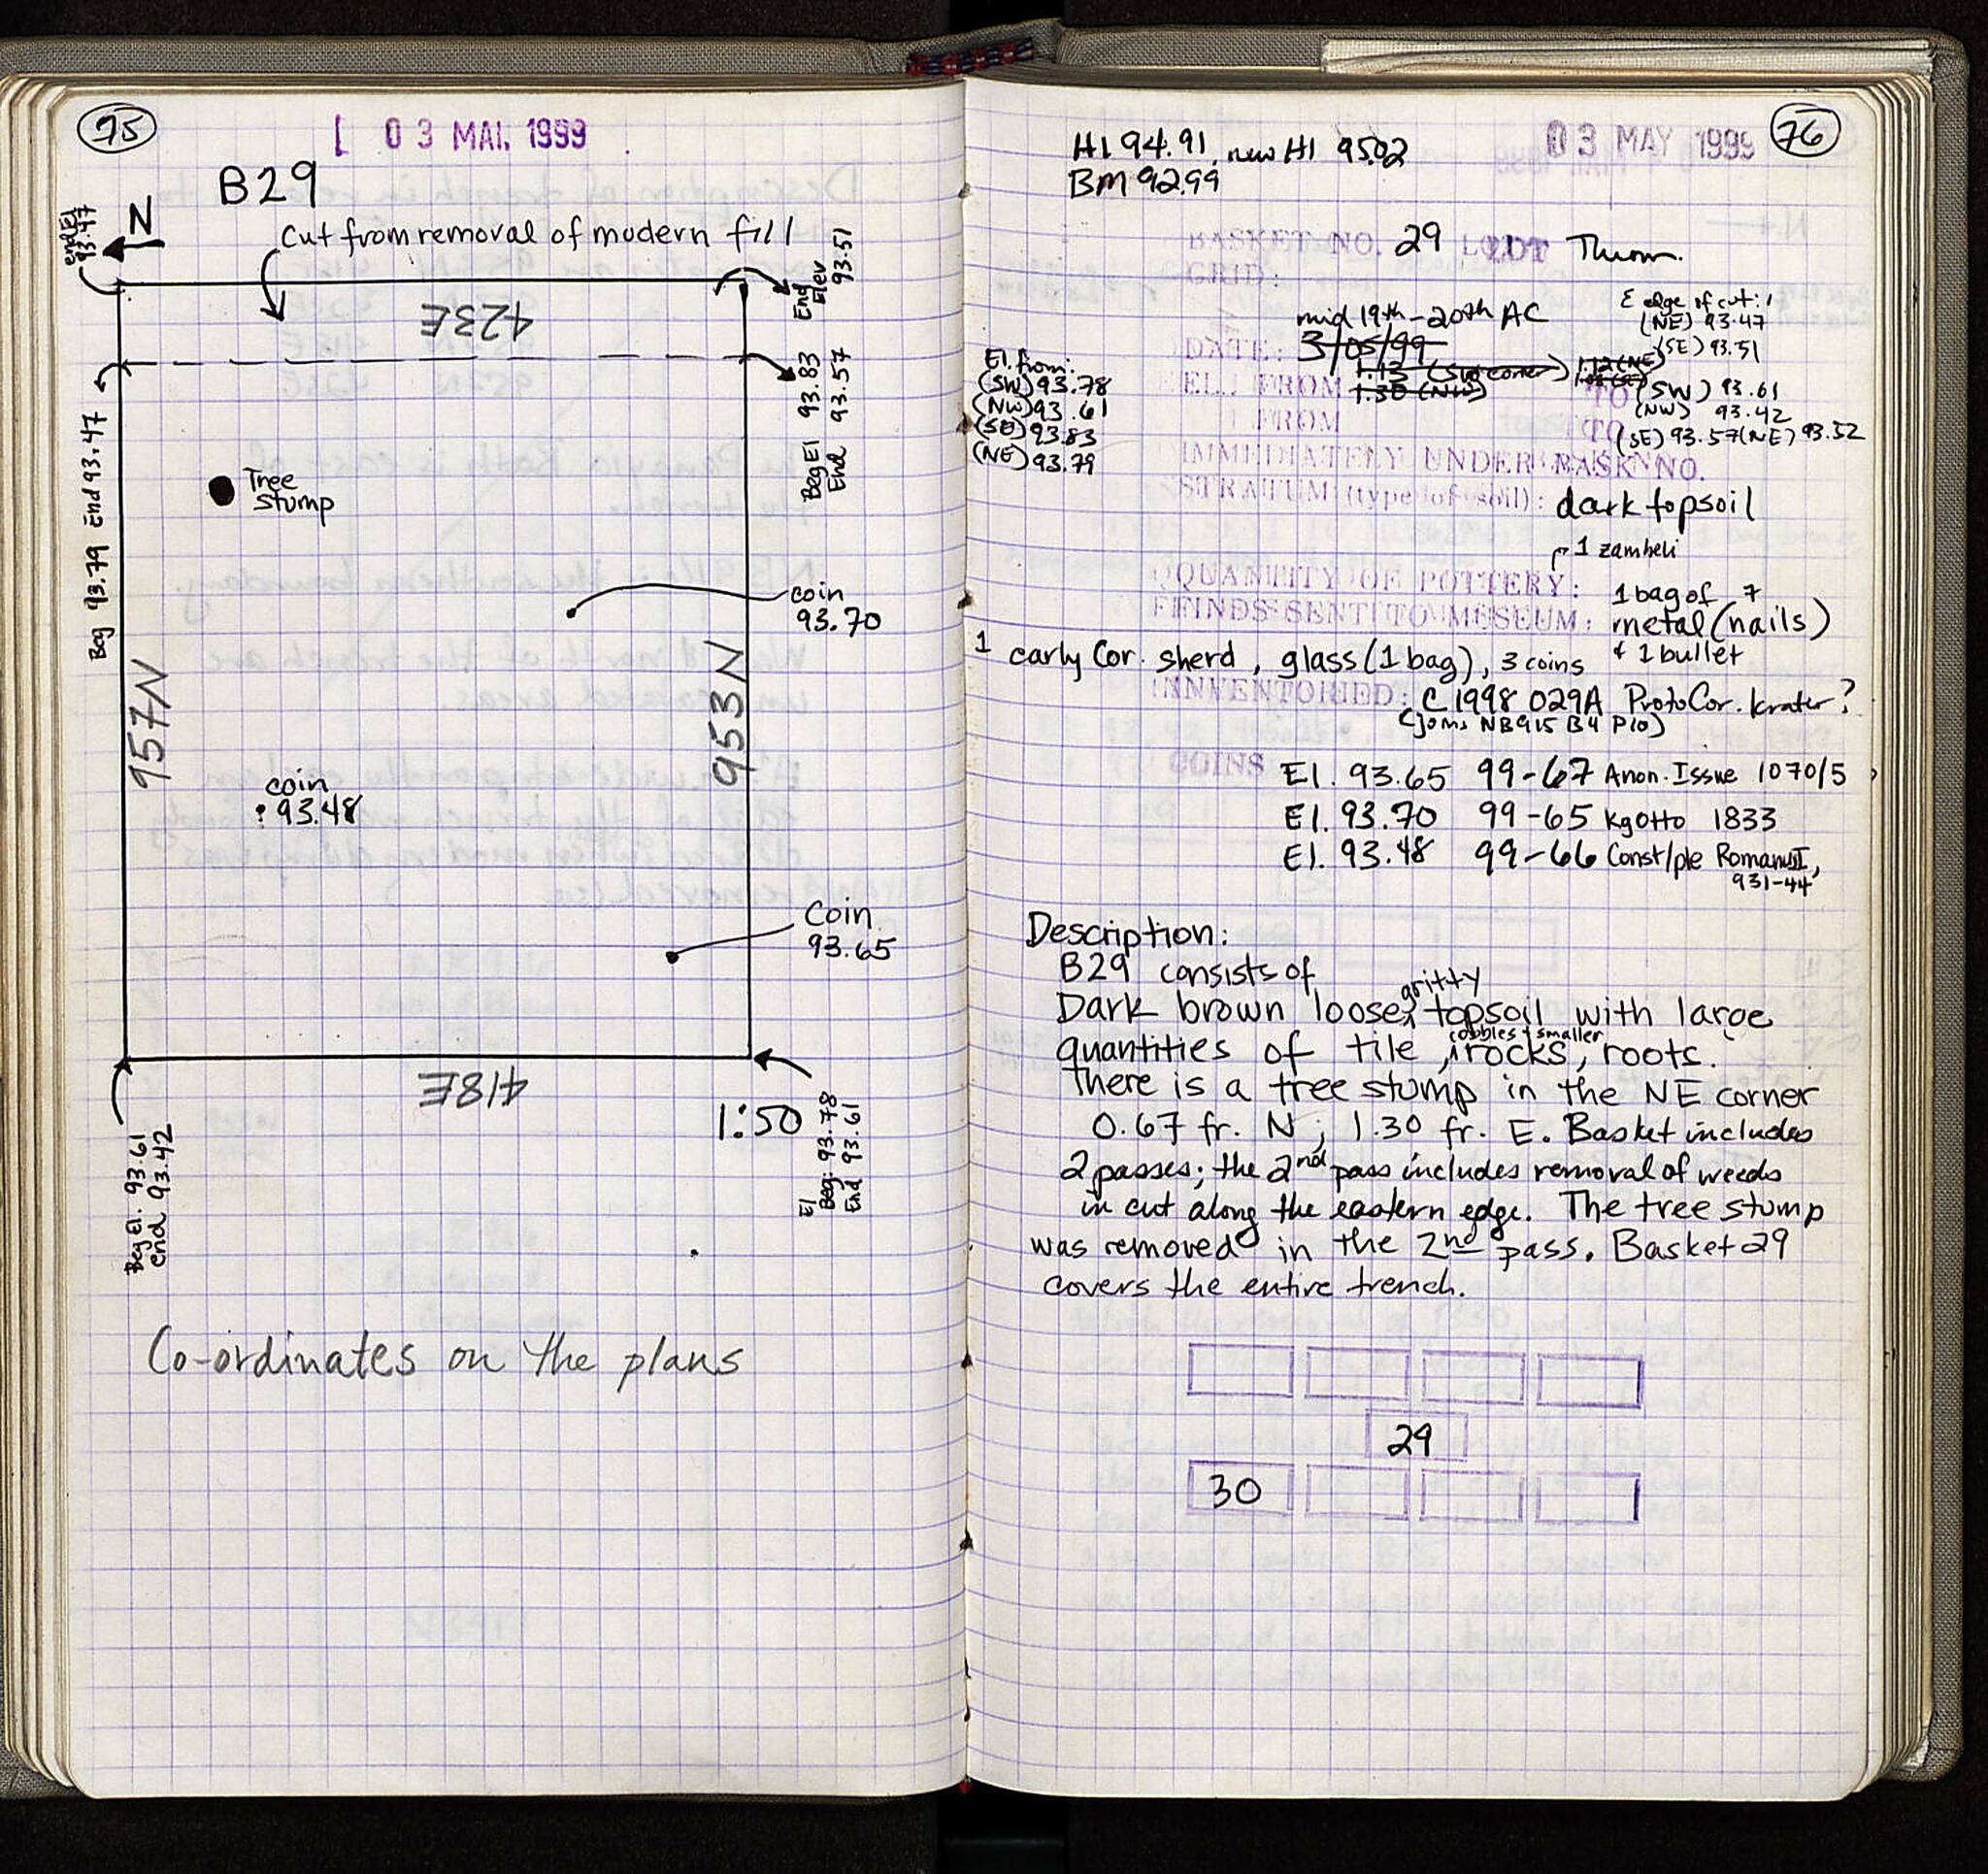 75
03 MAI. 1999
B29
N
end El
93.47
Cut from removal of modern fill
End
Elev
93.51
423E
Beg El 93.83
End 93.57
Beg 93.79 End 93.47
Tree
Stump
coin
93.70
957N
953N
coin
93.48
Coin
93.65
418E
1:50
El
Beg: 93.78
End 93.61
Beg El. 93.61
end 93.42
Co-ordinates on the plans
76
03 MAY 1999
HI 94.91, new HI 95.02
BM 92.99
BASKET NO. 29 LOT Thurs.
GRID:
mid 19th-20th AC
E edge of cut:
(NE) 93.47
(SE) 93.51
DATE: 3/05/99
El. from:
(SW) 93.78
(NW) 93.61
(SE) 93.83
(NE) 93.79
EL. FROM 1.13 (SW corner) 1.12 (NE)
1.30 (NW)
TO (SW) 93.61
(NW) 93.42
FROM TO (SE) 93.57 (NE) 93.52
IMMEDIATELY UNDER BASK NO.
STRATUM (type of soil): dark topsoil
1 zambeli
QUANTITY OF POTTERY: 1 bag of 7
FINDS SENT TO MUSEUM: metal (nails)
& 1 bullet
1 early Cor. sherd, glass (1 bag), 3 coins
INVENTORIED: C 1998 029A ProtoCor. krater?
(joins NB915 B4 P10)
COINS El. 93.65 99-67 Anon. Issue 1070/5
El. 93.70 99-65 Kg Otto 1833
El. 93.48 99-66 Const/ple Romanus I,
931-44
Description:
B29 consists of
Dark brown loose, gritty topsoil with large
quantities of tile, cobbles + smaller rocks, roots.
there is a tree stump in the NE corner
0.67 fr. N; 1.30 fr. E. Basket includes
2 passes; the 2nd pass includes removal of weeds
in cut along the eastern edge. The tree stump
was removed in the 2nd pass. Basket 29
covers the entire trench.
29
30